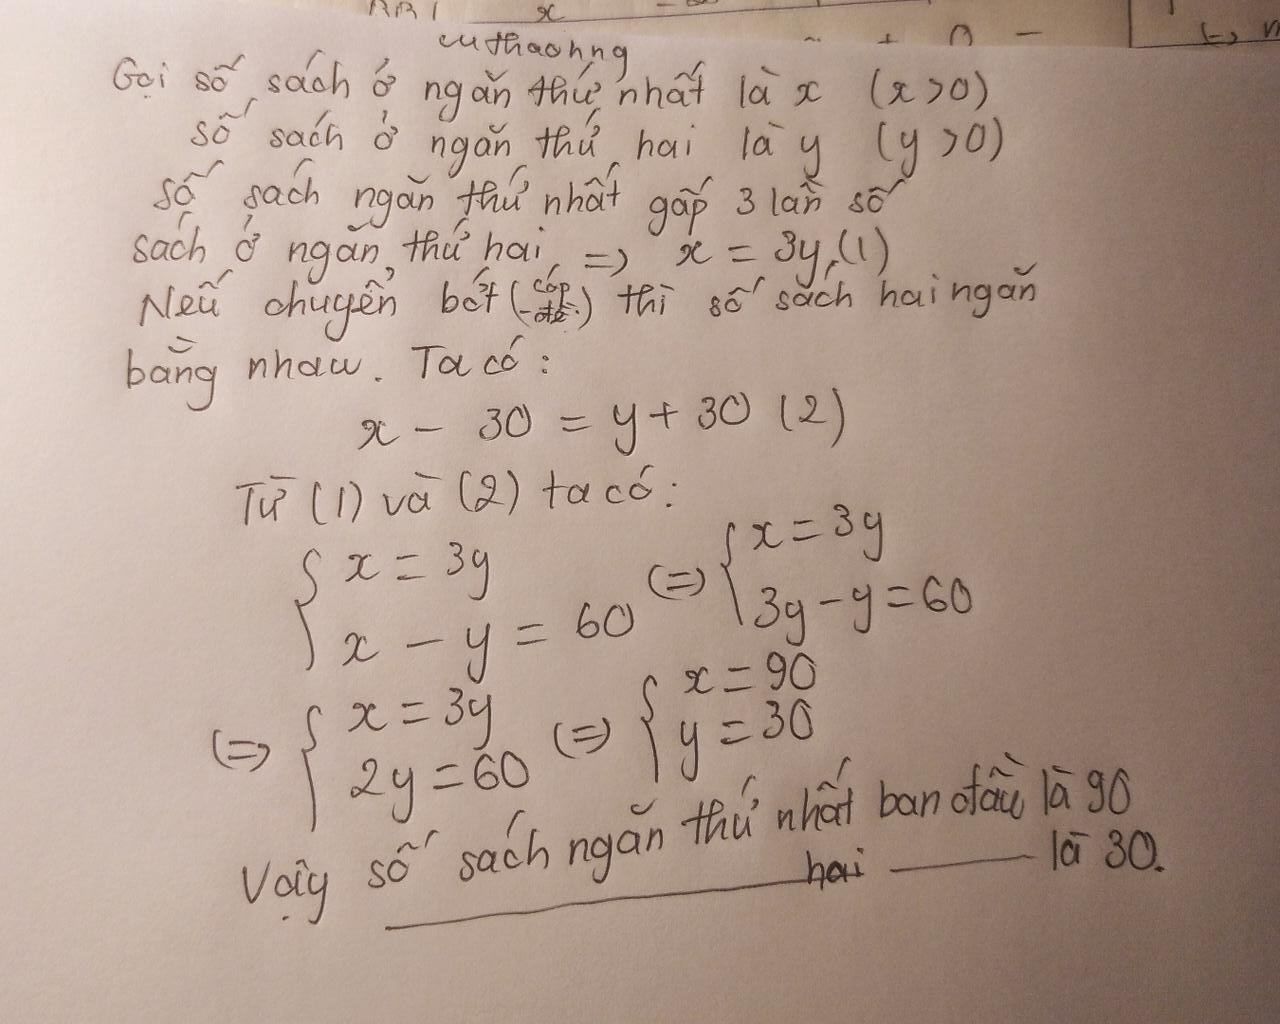 x
+ 0 -
cuthaohng
Gọi số sách ở ngăn thứ nhất là x (x>0)
số sách ở ngăn thứ hai là y (y>0)
Số sách ngăn thứ nhất gấp 3 lần số
sách ở ngăn thứ hai => x = 3y (1)
Nếu chuyển bớt (-cóp đề-) thì số sách hai ngăn
bằng nhau. Ta có:
x - 30 = y + 30 (2)
Từ (1) và (2) ta có:
{ x = 3y
x - y = 60 (=) { x = 3y
3y - y = 60
(=) { x = 3y
2y = 60 (=) { x = 90
y = 30
Vậy số sách ngăn thứ nhất ban đầu là 90
hai là 30.